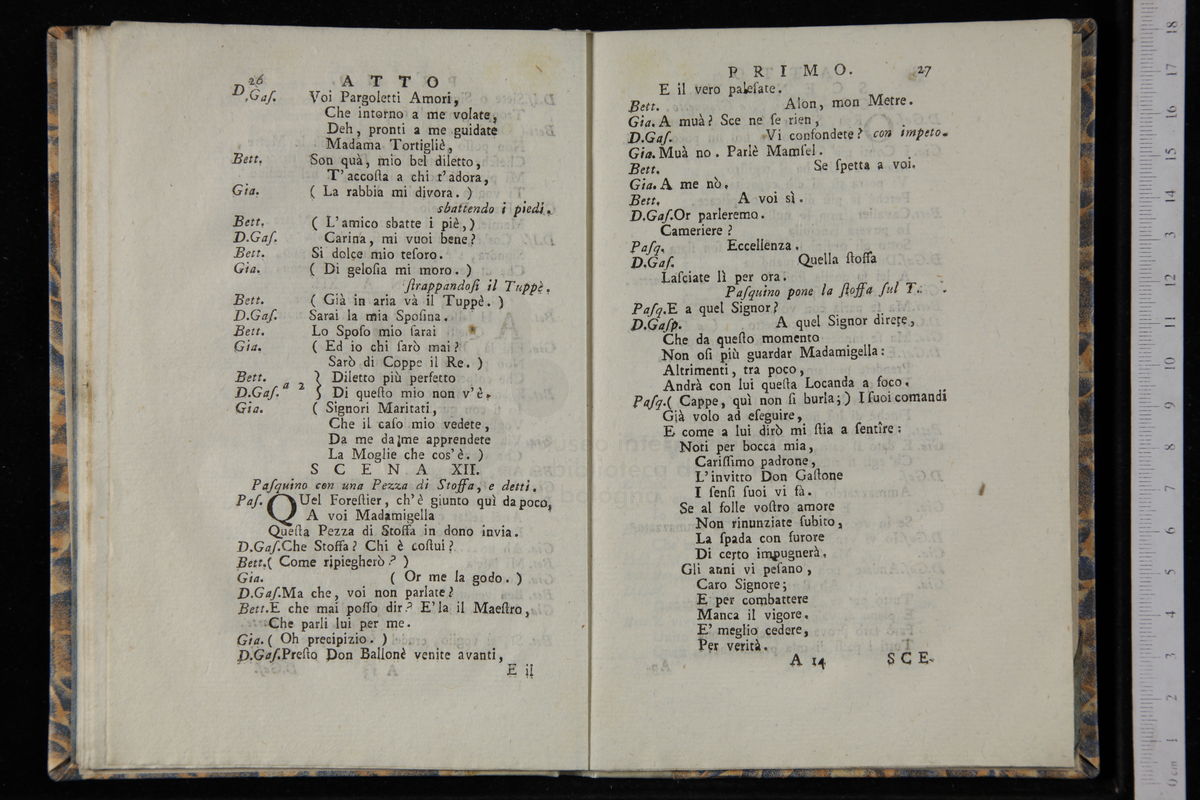 26 ATTO
D.Gaſ. Voi Pargoletti Amori,
Che intorno a me volate,
Deh, pronti a me guidate
Madama Tortigliè,
Bett. Son quà, mio bel diletto,
T'accoſta a chi t'adora,
Gia. ( La rabbia mi divora. )
sbattendo i piedi.
Bett. ( L'amico sbatte i piè,)
D.Gaſ. Carina, mi vuoi bene?
Bett. Si dolce mio teſoro.
Gia. ( Di geloſia mi moro. )
ſtrappandoſi il Tuppè.
Bett. ( Già in aria và il Tuppè. )
D.Gaſ. Sarai la mia Spoſina.
Bett. Lo Spoſo mio ſarai
Gia. ( Ed io chi ſarò mai?
Sarò di Coppe il Re. )
Bett. } Diletto più perfetto
D.Gaſ. a 2 } Di queſto mio non v'è.
Gia. ( Signori Maritati,
Che il caſo mio vedete,
Da me da me apprendete
La Moglie che cos'è. )
SCENA XII.
Paſquino con una Pezza di Stoffa, e detti.
Paſ. QUel Foreſtier, ch'è giunto quì da poco,
A voi Madamigella
Queſta Pezza di Stoffa in dono invia.
D.Gaſ.Che Stoffa? Chi è coſtui?
Bett.( Come ripiegherò? )
Gia. ( Or me la godo. )
D.Gaſ.Ma che, voi non parlate?
Bett.E che mai poſſo dir? E'la il Maeſtro,
Che parli lui per me.
Gia. ( Oh precipizio. )
D.Gaſ.Preſto Don Ballonè venite avanti,
E il
PRIMO. 27
E il vero paleſate.
Bett. Alon, mon Metre.
Gia. A muà? Sce ne ſe rien,
D.Gaſ. Vi confondete? con impeto.
Gia. Muà no. Parlè Mamſel.
Bett. Se ſpetta a voi.
Gia. A me nò.
Bett. A voi sì.
D.Gaſ.Or parleremo.
Cameriere?
Paſq. Eccellenza.
D.Gaſ. Quella ſtoffa
Laſciate lì per ora.
Paſquino pone la ſtoffa ſul T.
Paſq.E a quel Signor?
D.Gaſp. A quel Signor direte,
Che da queſto momento
Non oſi più guardar Madamigella:
Altrimenti, tra poco,
Andrà con lui queſta Locanda a foco.
Paſq.( Cappe, quì non ſi burla;) I ſuoi comandi
Già volo ad eſeguire,
E come a lui dirò mi ſtia a ſentire:
Noti per bocca mia,
Cariſſimo padrone,
L'invitto Don Gaſtone
I ſenſi ſuoi vi fà.
Se al folle voſtro amore
Non rinunziate ſubito,
La ſpada con furore
Di certo impugnerà.
Gli anni vi peſano,
Caro Signore;
E per combattere
Manca il vigore.
E' meglio cedere,
Per verità.
A 14 SCE-